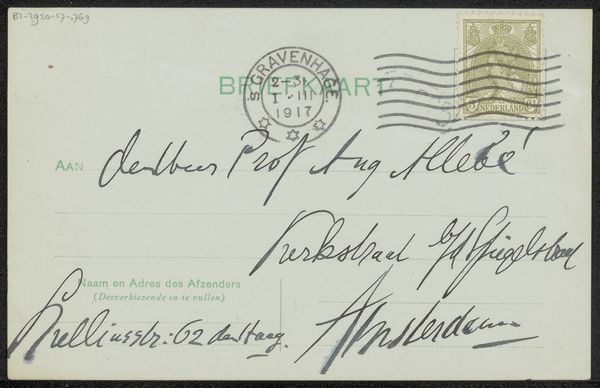 BI-1950-17-769
BRIEFKAART
'S GRAVENHAGE
2-3
1.III
1917
NEDERLAND
AAN den Heer Prof Aug Allebé
Kerkstraat b/d Spiegelstraat
Amsterdam
Naam en Adres des Afzenders
(Desverkiezende in te vullen)
Quellinusstr: 62 den Haag.